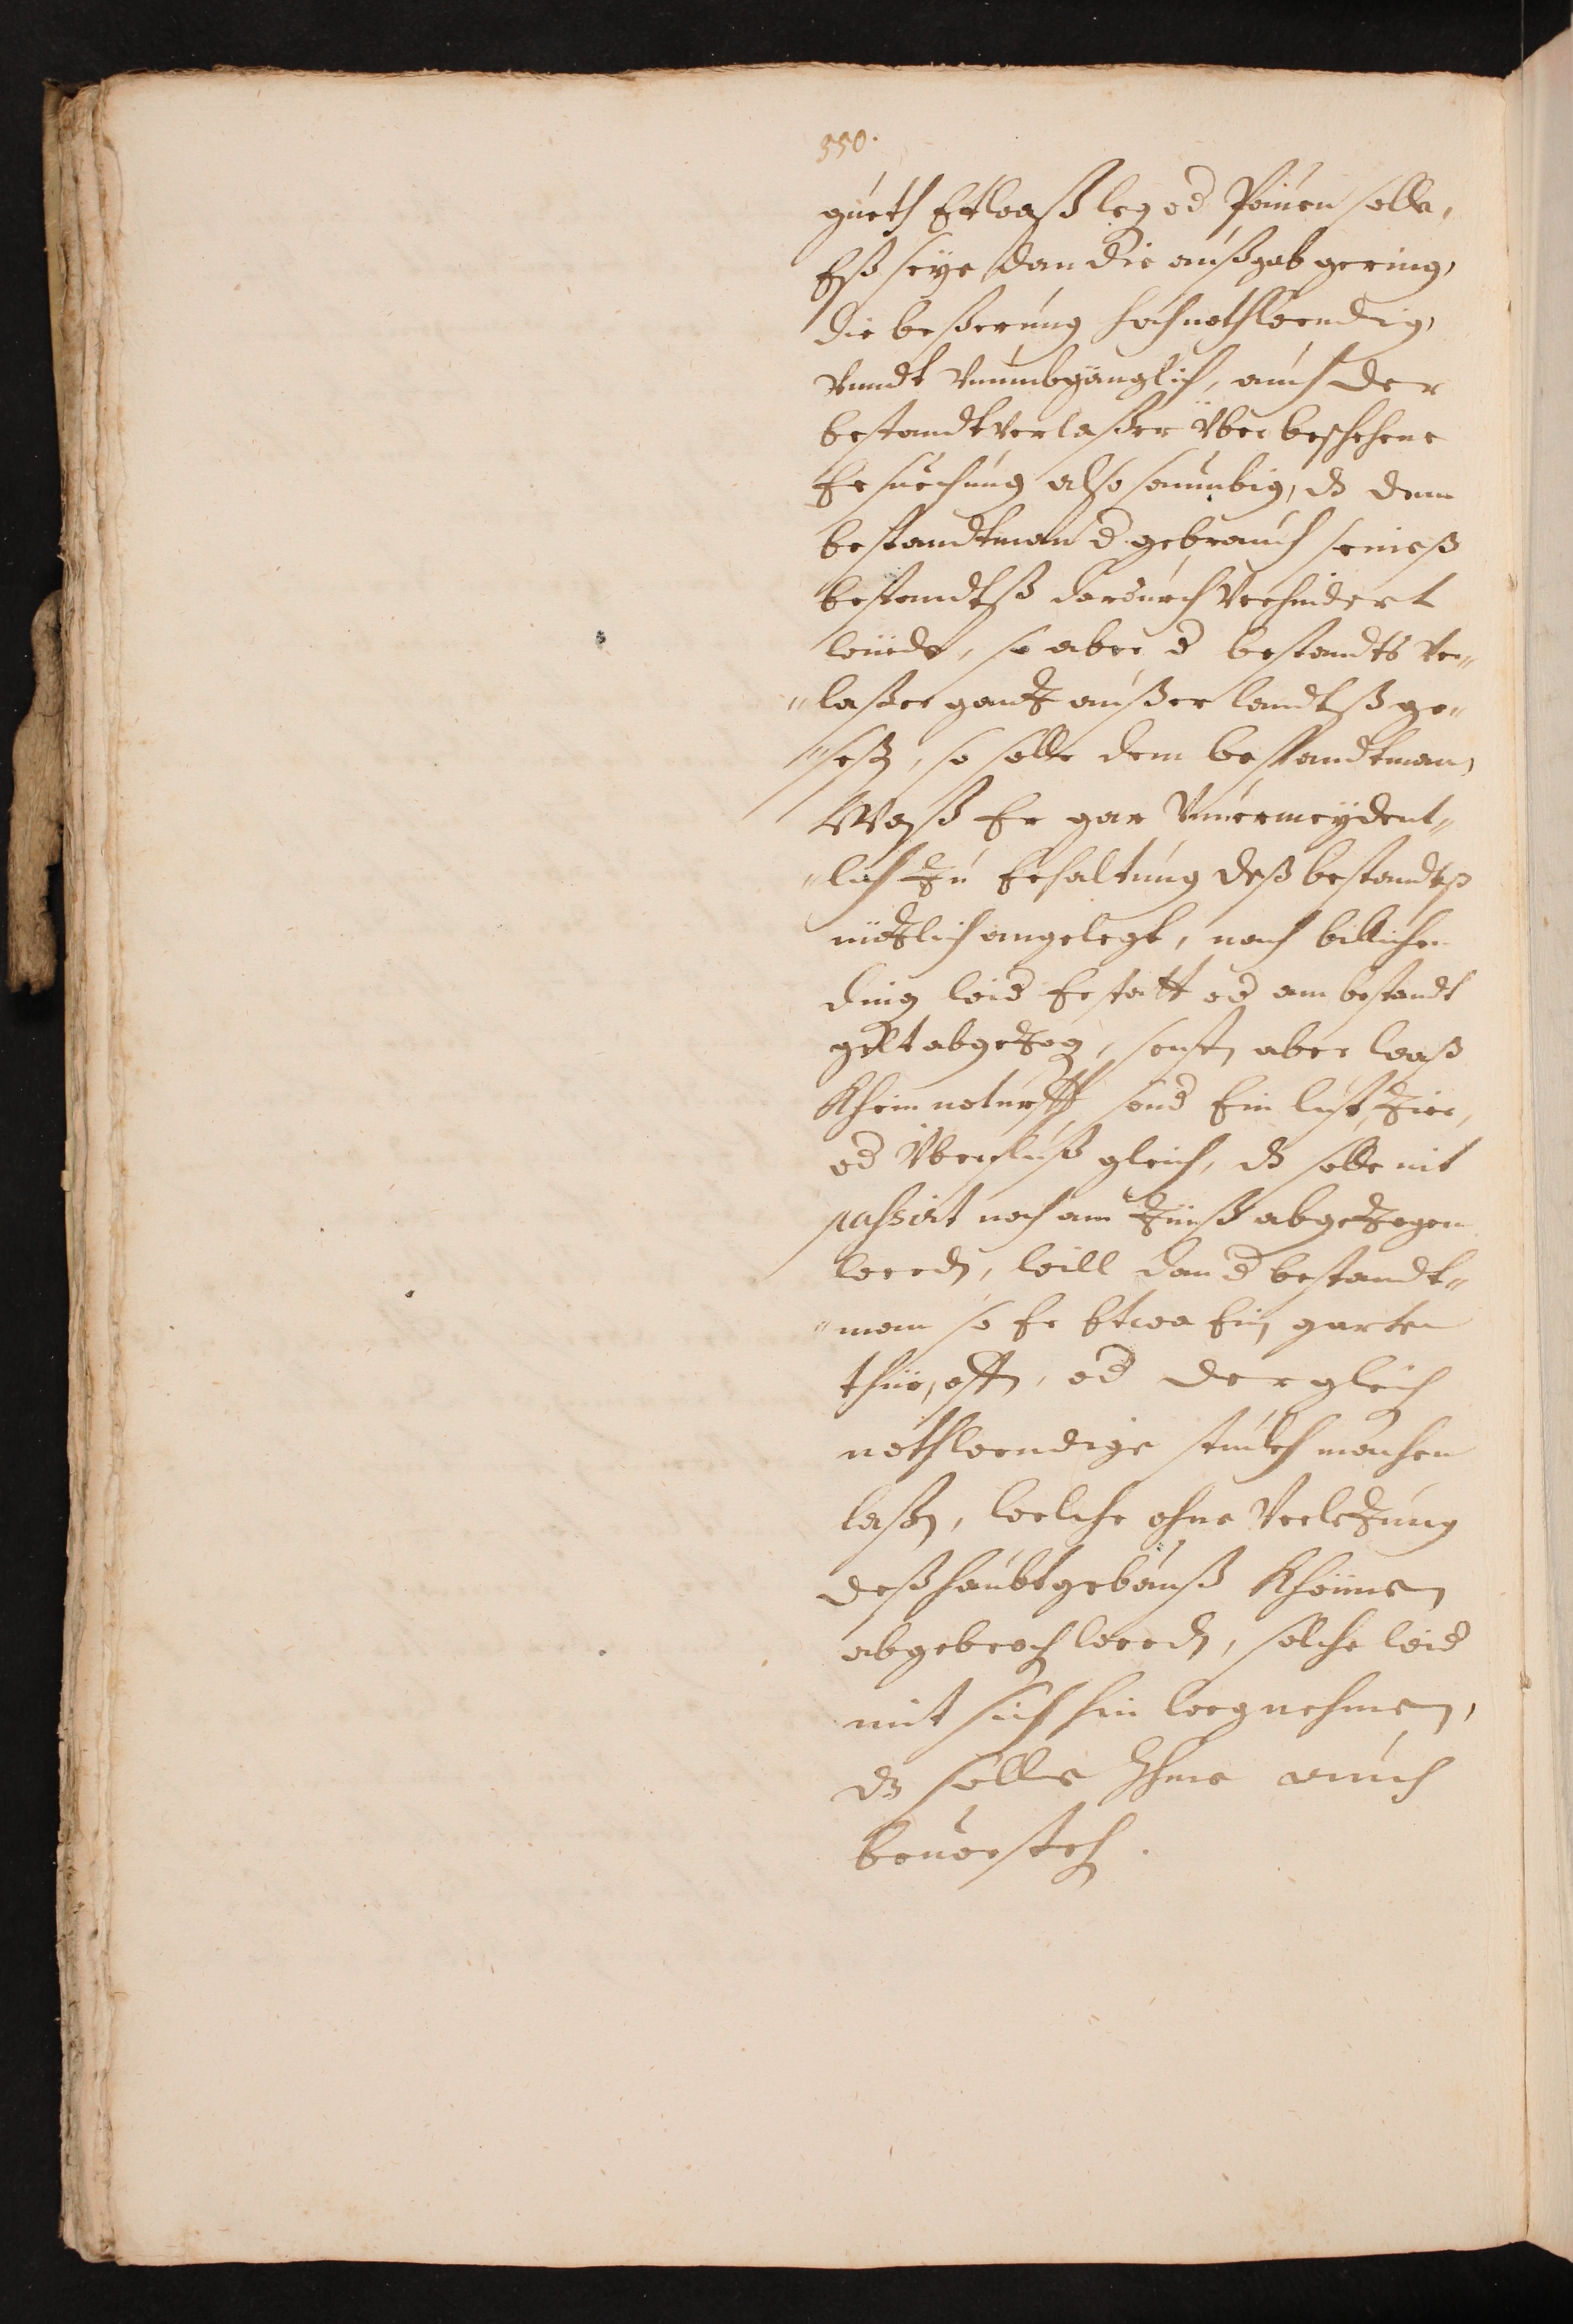 350.
gueth Etwaß leg od Pauen solle,
Eß seye dan die außgab gering,
die beßerung hochnothwendig,
Vnndt Vnumbgänglich, auch der
bestandtverlaßer über beschehene
Ersuechung also saumbig, dz dem
bestandtman d gebrauch seineß
bestandtß dardurch Verhindert
würde, so aber d bestandts Ver„
„laßer gantz außer landtß ge„
„seßen, so solle dem bestandtman,
Waß Er gar Vnuermeydent„
„lich zu Erhaltung deß bestandtß
nützlich angelegt, nach billichen
ding wid Erstatt od am bestandt
gelt abgezogen, sonsten aber waß
Khein noturfft, sond Ein lust, Zier,
od Überfluß gleich, dz solle nit
passirt noch am Zünß abgezogen
werden, will dan d bestandt„
„man so Er Etwa Ein garten
thür, offen, od dergleichen
nothwendige stuckh machen
laßen, welche ohne Verlezung
deß haubtgebäuß Khönnen
abgebrochen werden, solche wid
mit sich hin weg nehmen,
dz solle Ihme auch
beuorstehen.